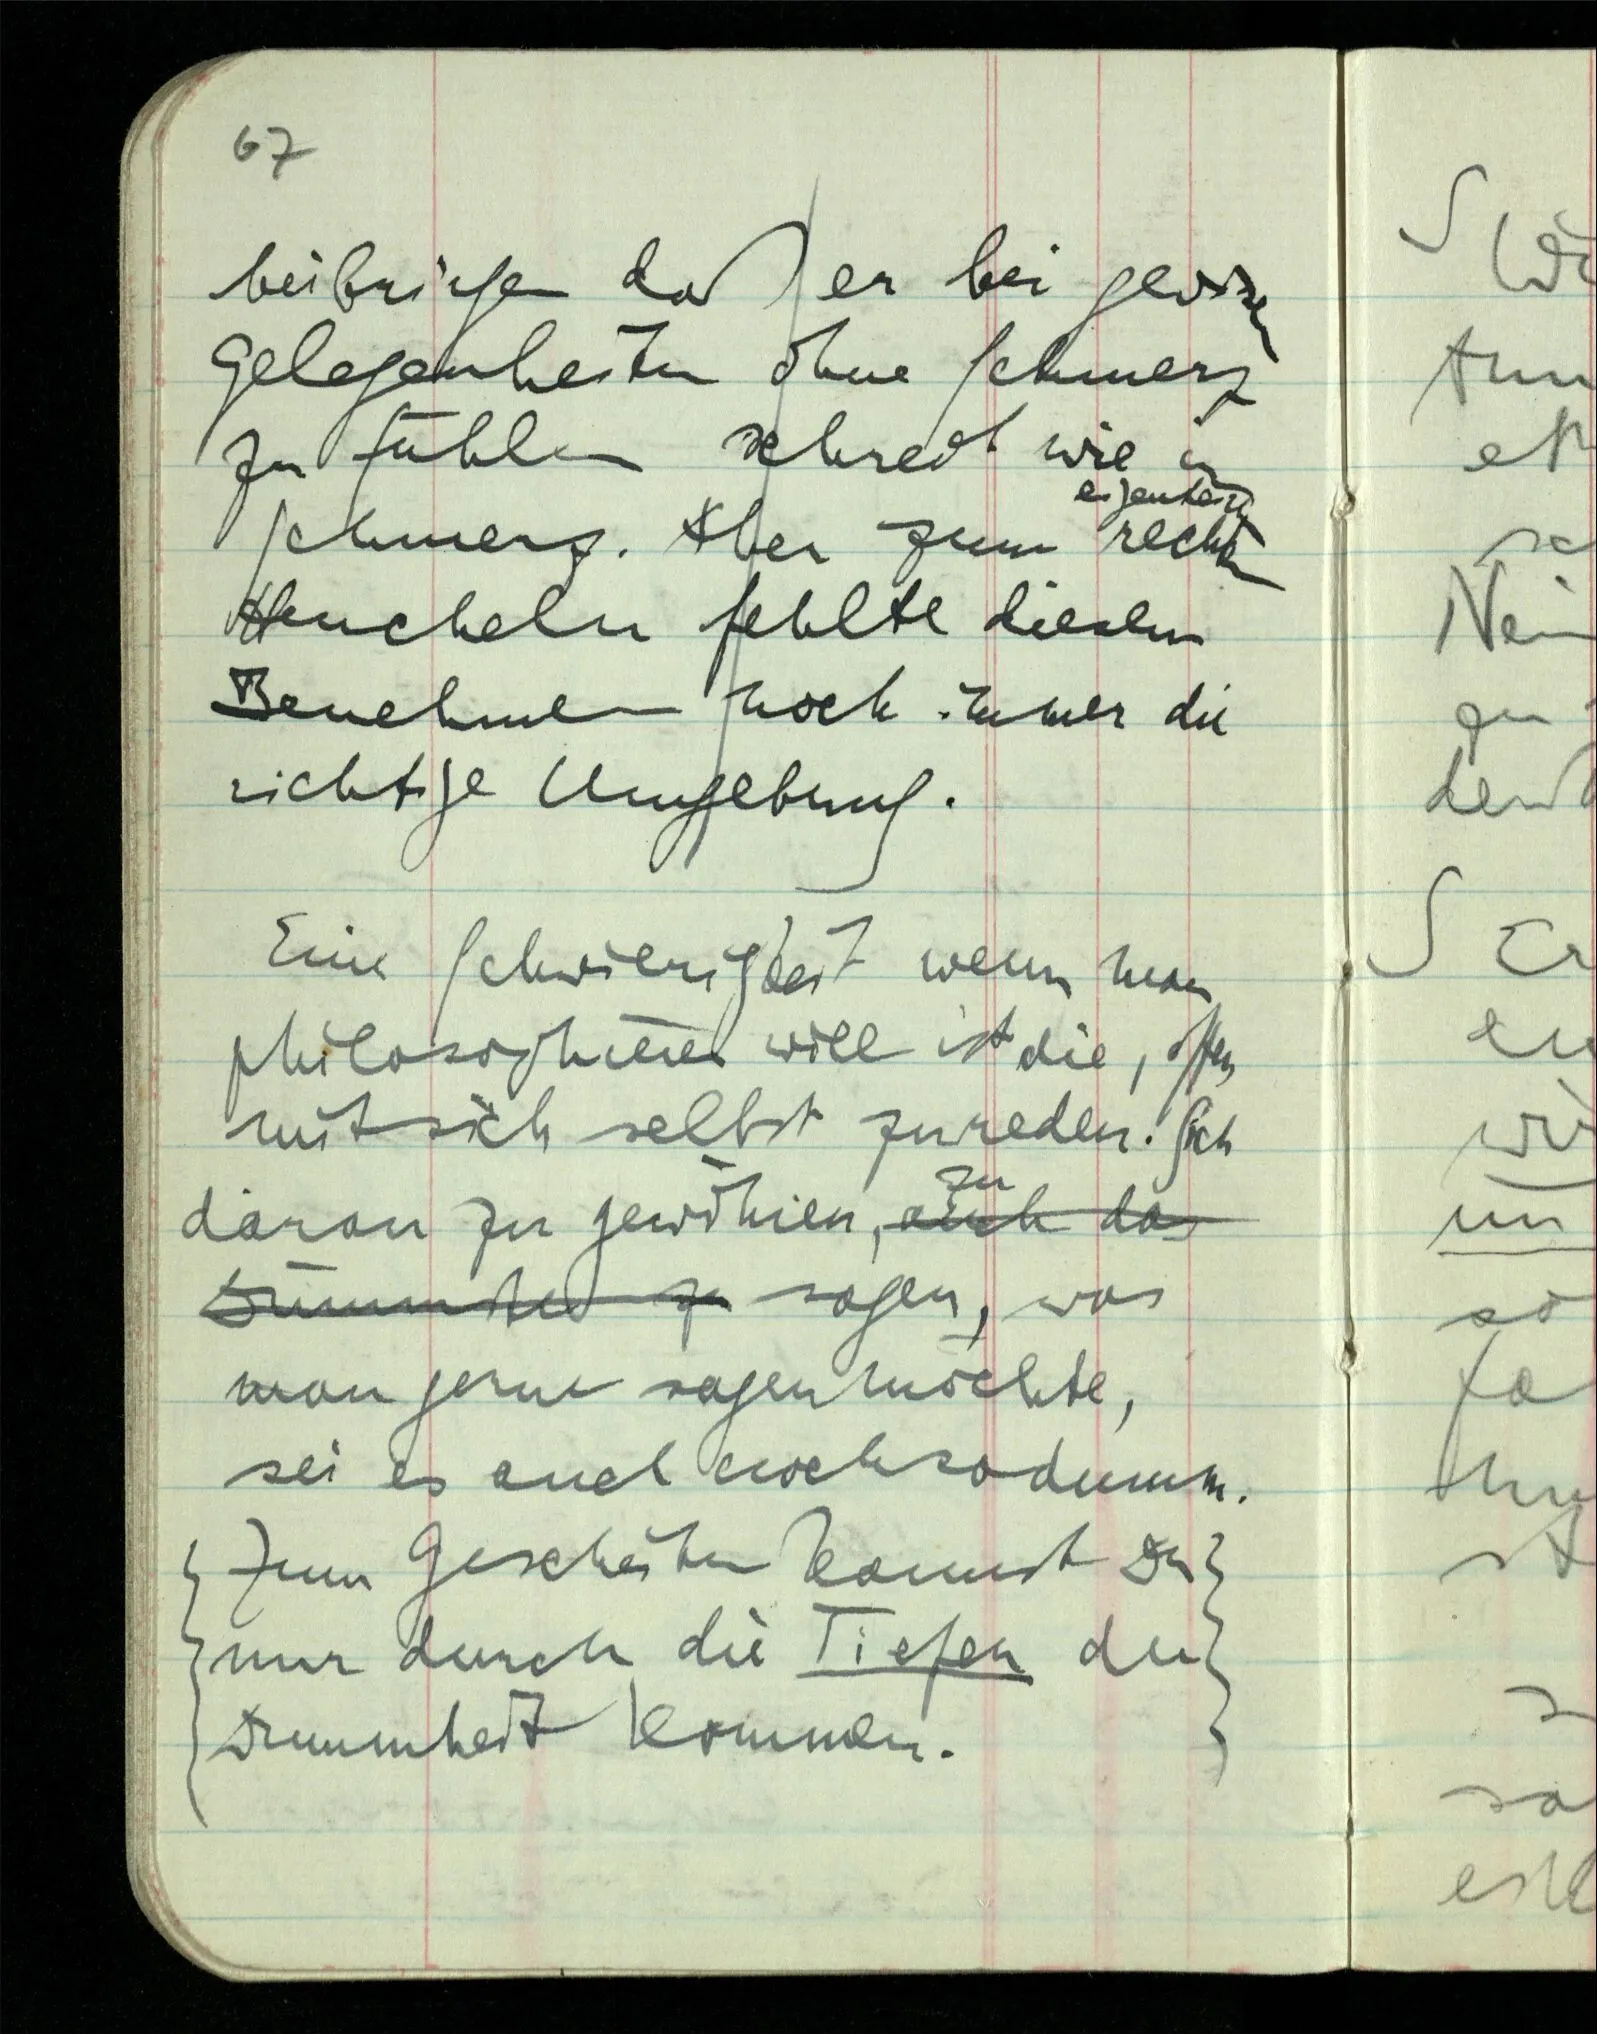 67
beibringen daß er bei gewissen
Gelegenheiten ohne Schmerz
zu fühlen schreit wie in
Schmerz. Aber zum rechten
eigentlichen
Heucheln fehlte diesem
Benehmen noch immer die
richtige Umgebung.
Eine Schwierigkeit wenn man
philosophieren will ist die, offen
mit sich selbst zu reden. Sich
daran zu gewöhnen, auch das
zu
Dümmste zu sagen, was
man gerne sagen möchte,
sei es auch noch so dumm.
Zum Gescheiten kannst Du
nur durch die Tiefen der
Dummheit kommen.